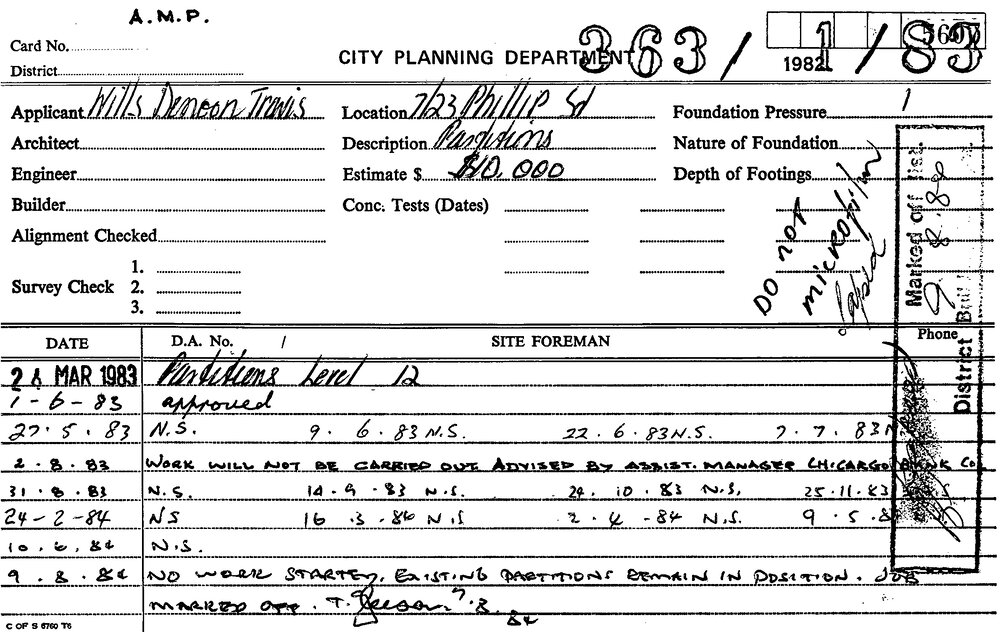 A.M.P.
Card No.
District
CITY PLANNING DEPARTMENT
363/1/83
1982
Applicant Wills Denoon Travis
Location 7/23 Phillip St
Foundation Pressure
Architect
Description Partitions
Nature of Foundation
Engineer
Estimate $ $10,000
Depth of Footings
Builder
Conc. Tests (Dates)
Alignment Checked
Survey Check
1.
2.
3.
DO NOT
microfilm
lapsed
Marked off list.
9.8.84
District
DATE
D.A. No. /
SITE FOREMAN
Phone
MAR 1983 Partitions Level 12
1-6-83 approved
27.5.83 N.S. 9.6.83 N.S. 22.6.83 N.S. 7.7.83 N
2.8.83 WORK WILL NOT BE CARRIED OUT ADVISED BY ASSIST. MANAGER CHICARGO BANK Co
31.8.83 N.S. 14.9.83 N.S. 24.10.83 N.S. 25.11.83 N.S
24-2-84 NS 16.3.84 N.S 2.4.84 N.S. 9.5.8
10.6.84 N.S.
9.8.84 NO WORK STARTED, EXISTING PARTITIONS REMAIN IN POSITION. JOB
MARKED OFF. T.
84
C OF S 6760 T6